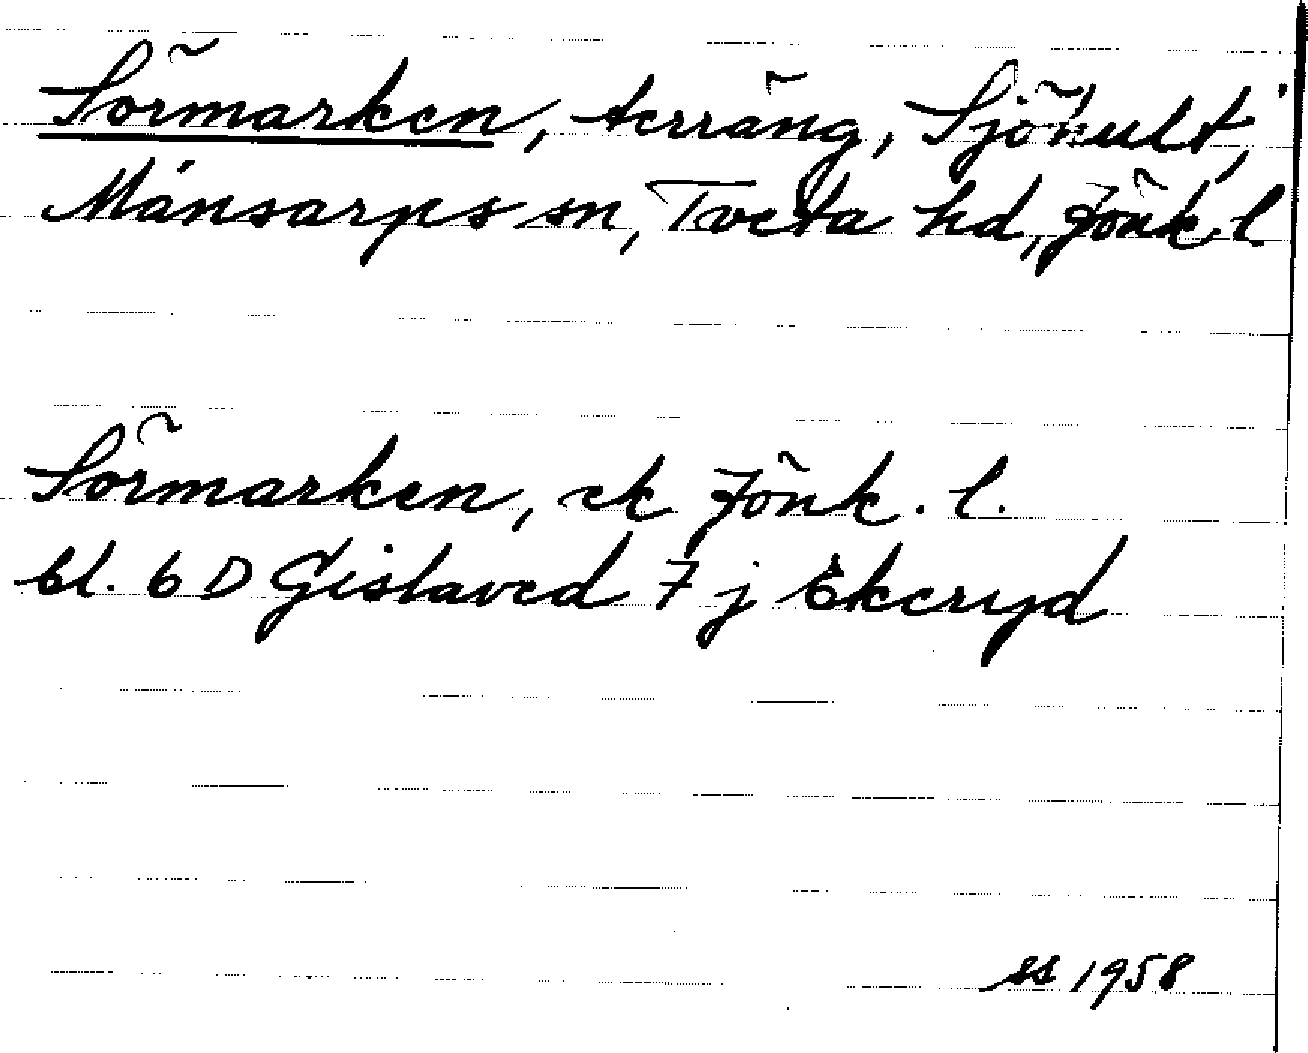 Sörmarken, terräng, Sjöhult,
Månsarps sn, Tveta hd, Jönk. l
Sörmarken, ek Jönk. l.
bl. 6 D Gislaved 7 j Ekeryd
ss 1958